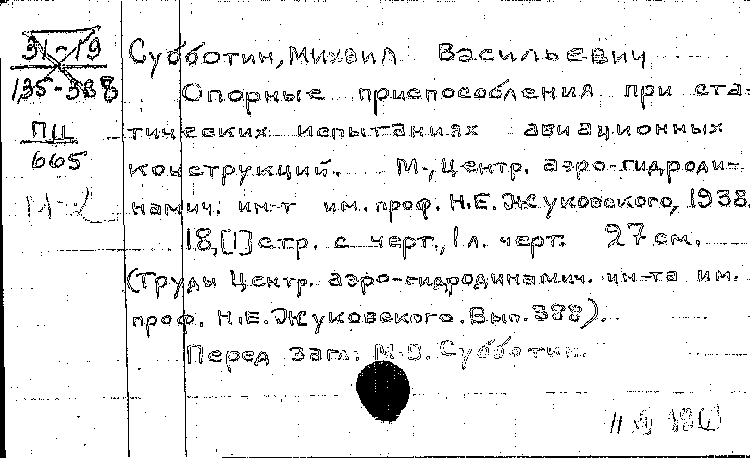 31-19
135-388
ПЦ
665
М-2
Субботин, Михаил Васильевич
Опорные приспособления при ста-
тических испытаниях авиационных
конструкций. М., Центр. аэро-гидроди-
намич. ин-т им. проф. Н.Е.Жуковского, 1938.
18,[1] стр. с черт., 1 л. черт. 27 см.
(Труды Центр. аэро-гидродинамич. ин-та им.
проф. Н.Е.Жуковского. Вып. 388).
Перед загл: М.В. Субботин.